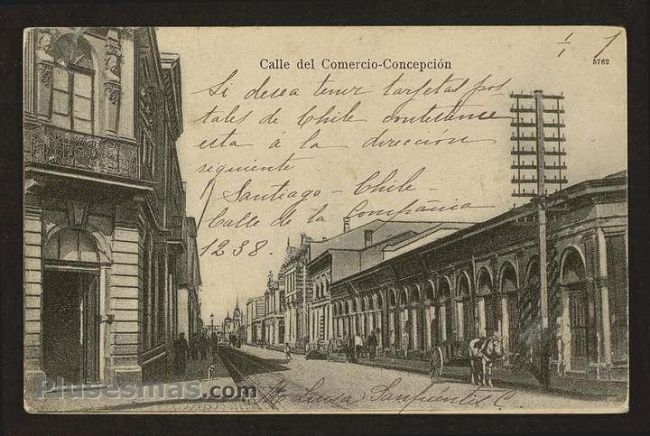 Calle del Comercio-Concepción
5762
1/1
Si desea tener tarjetas pos
tales de Chile contésteme
esta á la direccion
siguiente
Santiago - Chile -
Calle de la Compañia
1238.
Mª Luisa Sanfuentes C.
Plusesmas.com